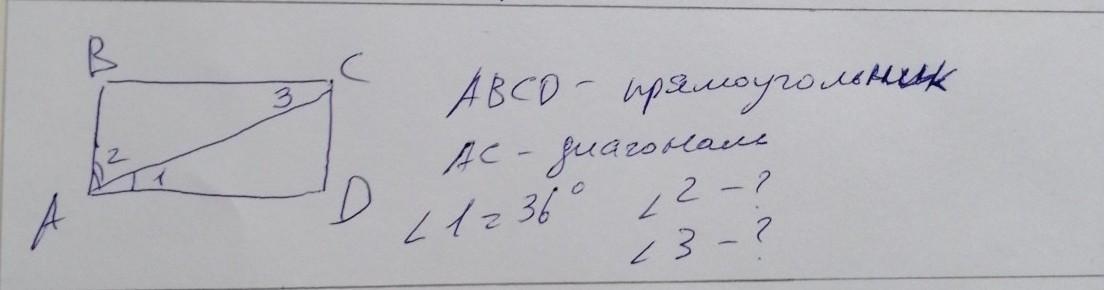 B
C
3
2
1
A
D
ABCD - прямоугольник
AC - диагональ
∠1 = 36°
∠2 - ?
∠3 - ?